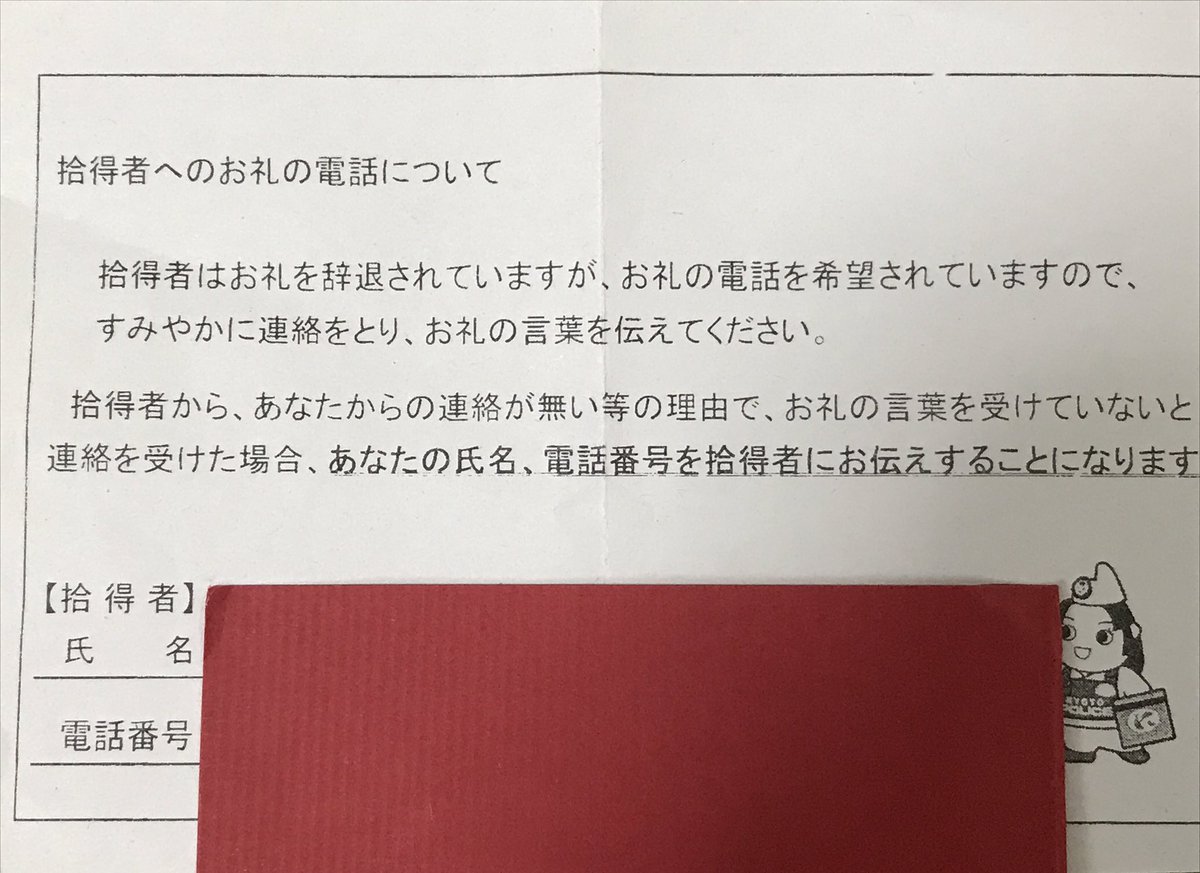 拾得者へのお礼の電話について
拾得者はお礼を辞退されていますが、お礼の電話を希望されていますので、
すみやかに連絡をとり、お礼の言葉を伝えてください。
拾得者から、あなたからの連絡が無い等の理由で、お礼の言葉を受けていないと
連絡を受けた場合、あなたの氏名、電話番号を拾得者にお伝えすることになります
【拾 得 者】
氏　　名
電話番号